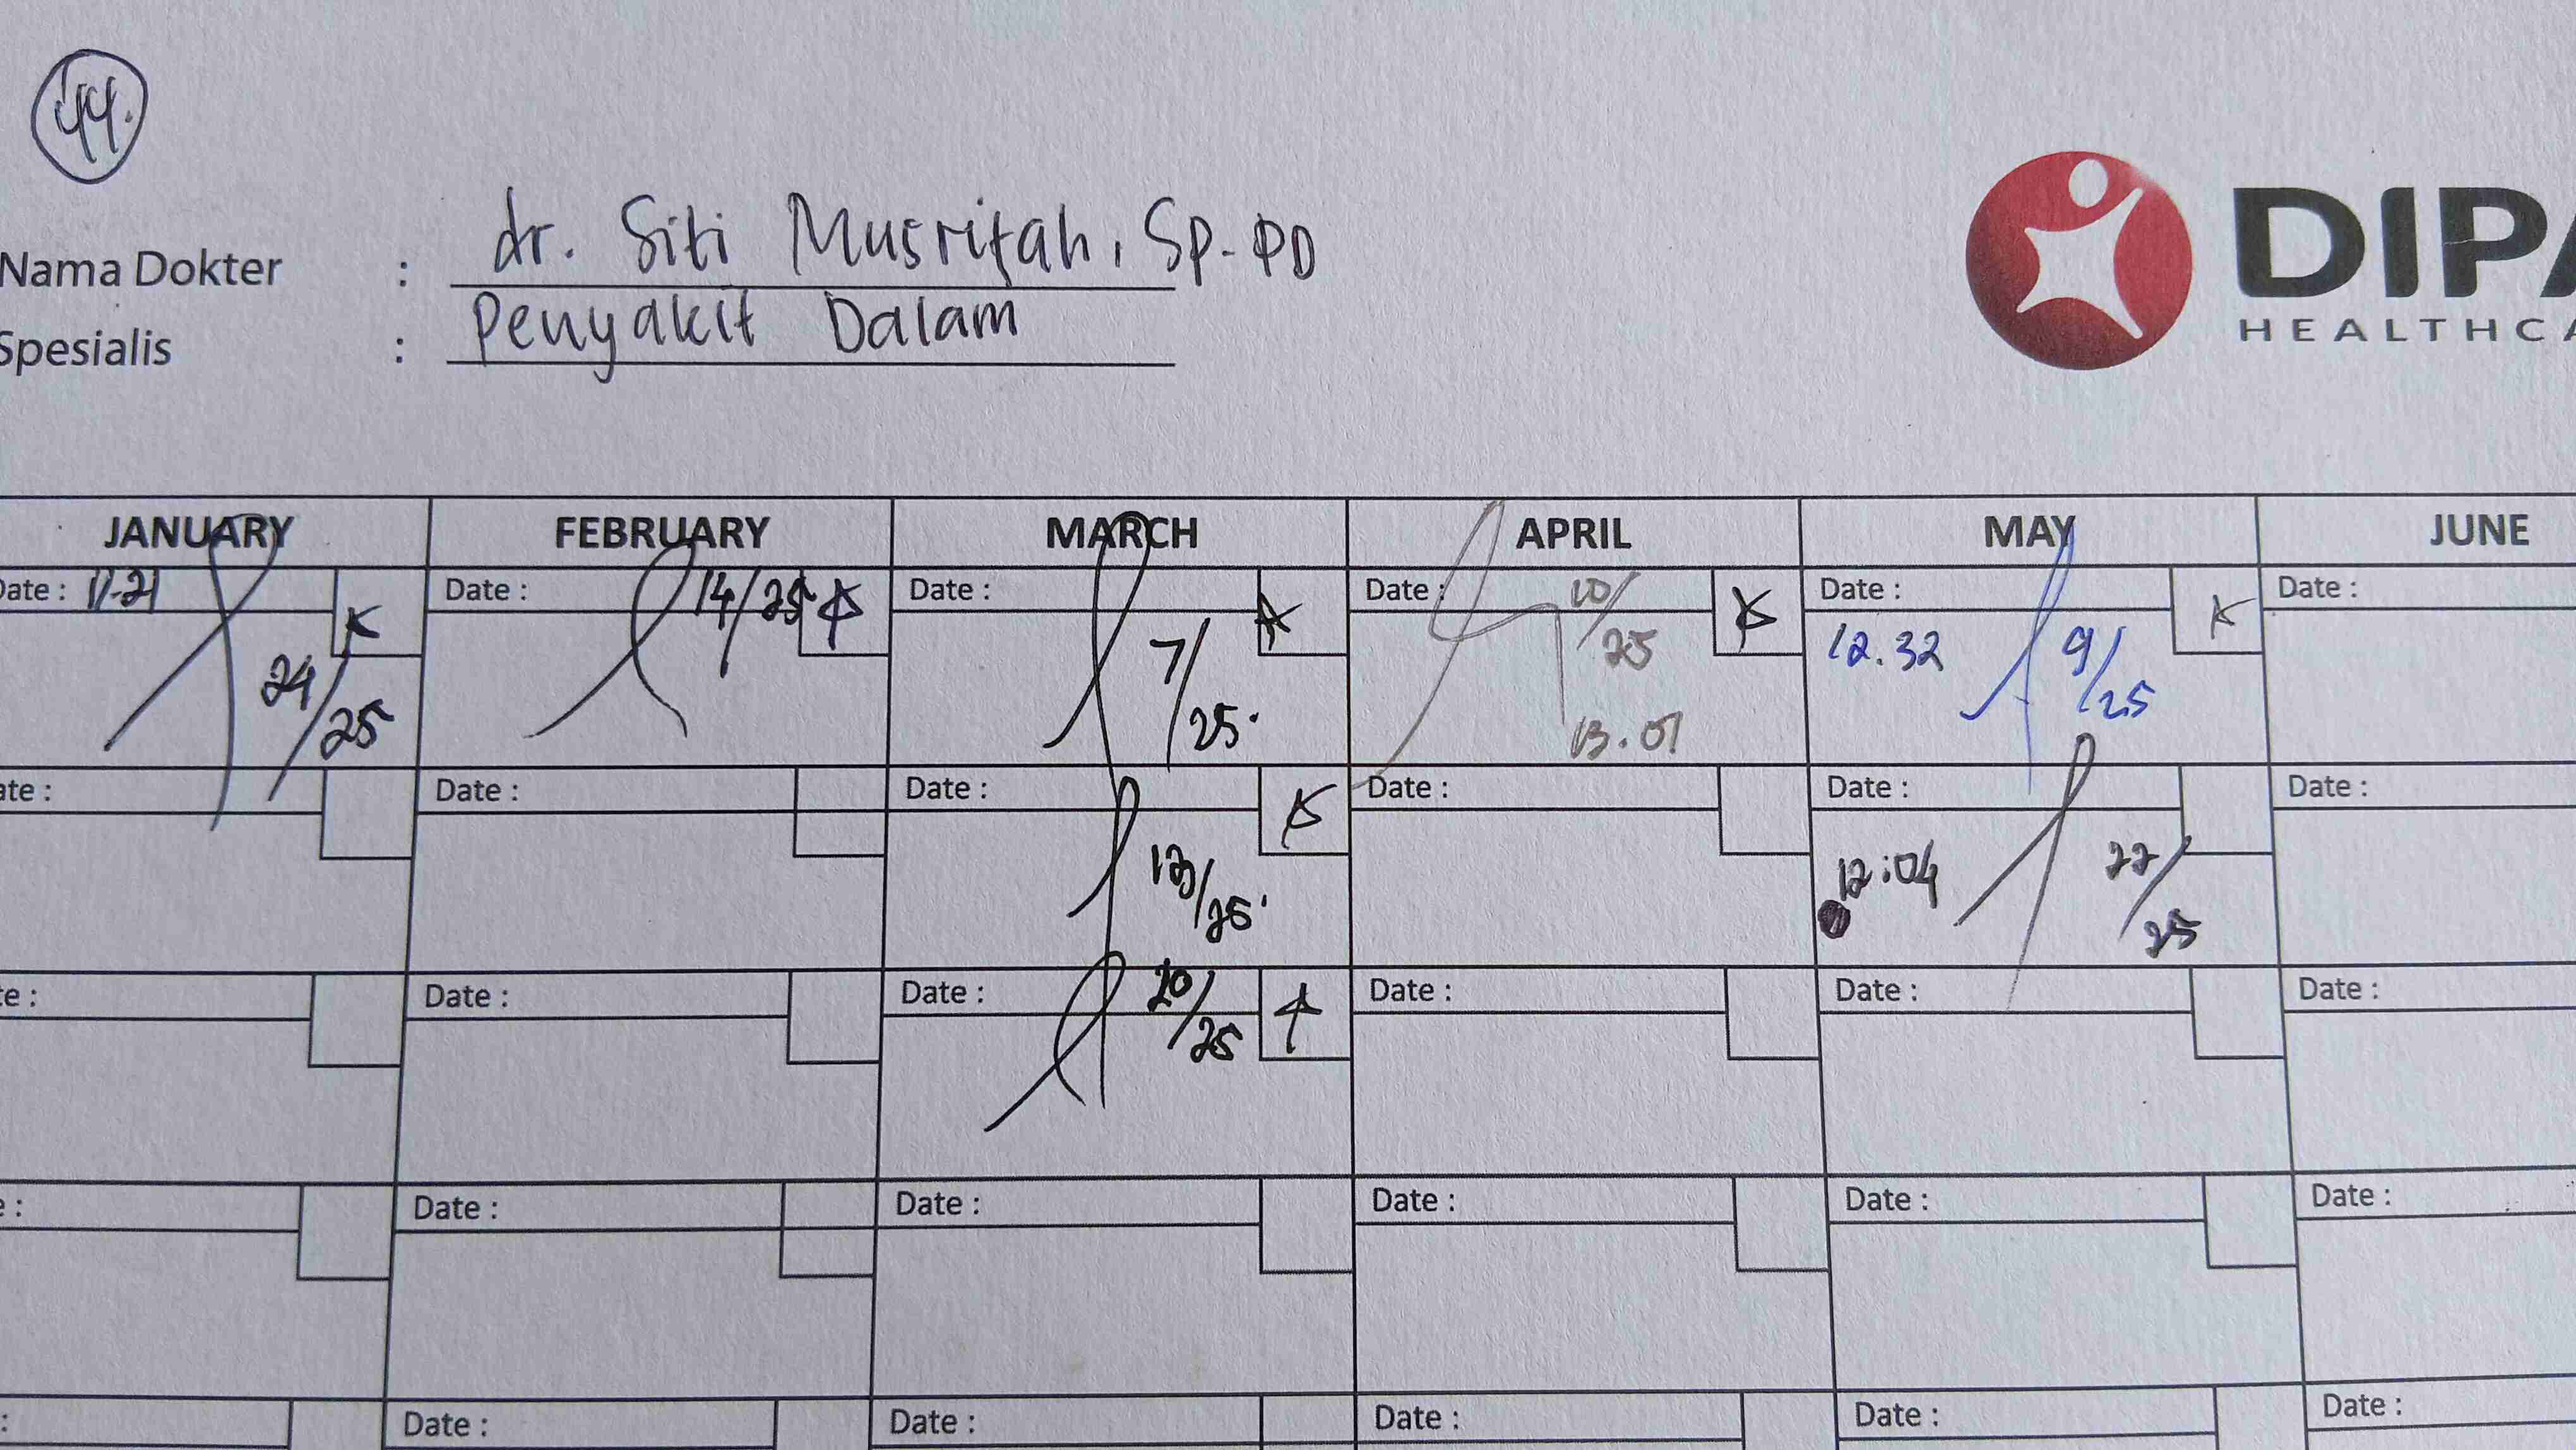 44.
Nama Dokter : dr. Siti Musrifah, Sp-PD
Spesialis : Penyakit Dalam
DIPA
HEALTHCA
JANUARY FEBRUARY MARCH APRIL MAY JUNE
Date : 11-21 Date : 14/25 Date : Date : 10/ Date : Date :
24/25 7/25. 25 12.32 9/25
13.01
ate : Date : Date : Date : Date : Date :
13/25. 12:04 22/25
te : Date : Date : 20/25 Date : Date : Date :
e : Date : Date : Date : Date : Date :
: Date : Date : Date : Date : Date :